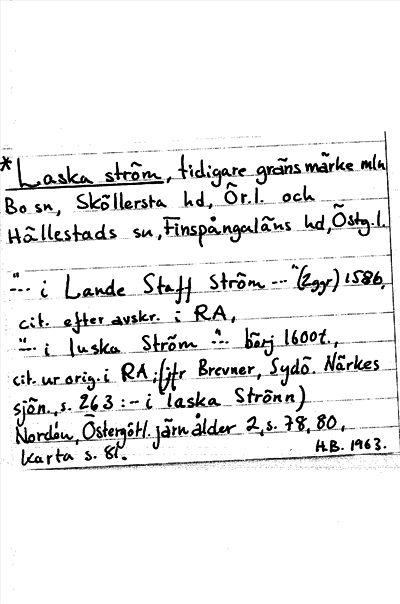 * Laska ström, tidigare gränsmärke mln
Bo sn, Sköllersta hd, Ör.l. och
Hällestads sn, Finspångaläns hd, Östg.l.
"--- i Lande Staff Ström ---" (2ggr) 1586,
cit. efter avskr. i RA,
"--- i luska Ström "--- börj 1600t.,
cit. ur orig. i RA; (jfr Brevner, Sydö. Närkes
sjön., s. 263 : -- i laska Strönn)
Nordén, Östergötl. järnålder 2, s. 78, 80,
karta s. 81.
H.B. 1963.